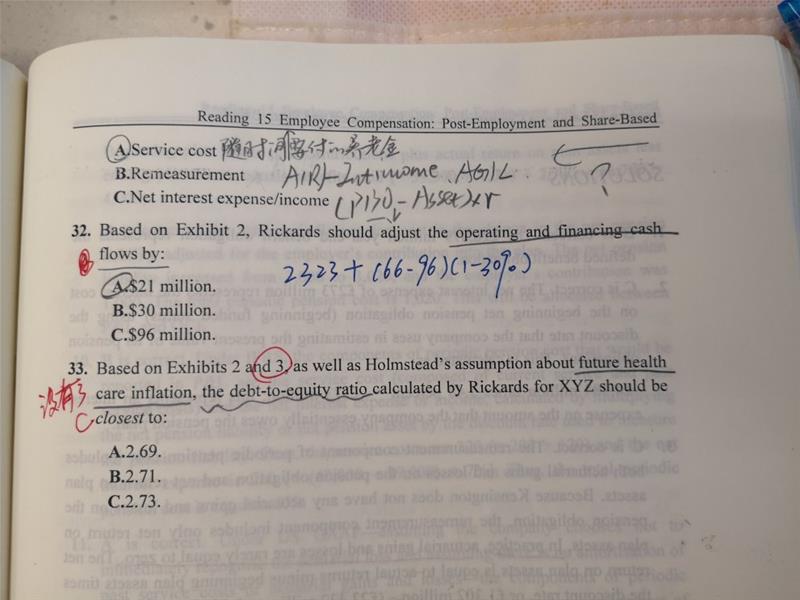 Reading 15 Employee Compensation: Post-Employment and Share-Based
A.Service cost 随时间要付的养老金
B.Remeasurement A(R)-Int income. AG/L. ?
C.Net interest expense/income (PBO - Asset)xr
32. Based on Exhibit 2, Rickards should adjust the operating and financing cash
flows by:
2323+(66-96)(1-30%)
A.$21 million.
B.$30 million.
C.$96 million.
33. Based on Exhibits 2 and 3, as well as Holmstead's assumption about future health
没有3
care inflation, the debt-to-equity ratio calculated by Rickards for XYZ should be
C
closest to:
A.2.69.
B.2.71.
C.2.73.